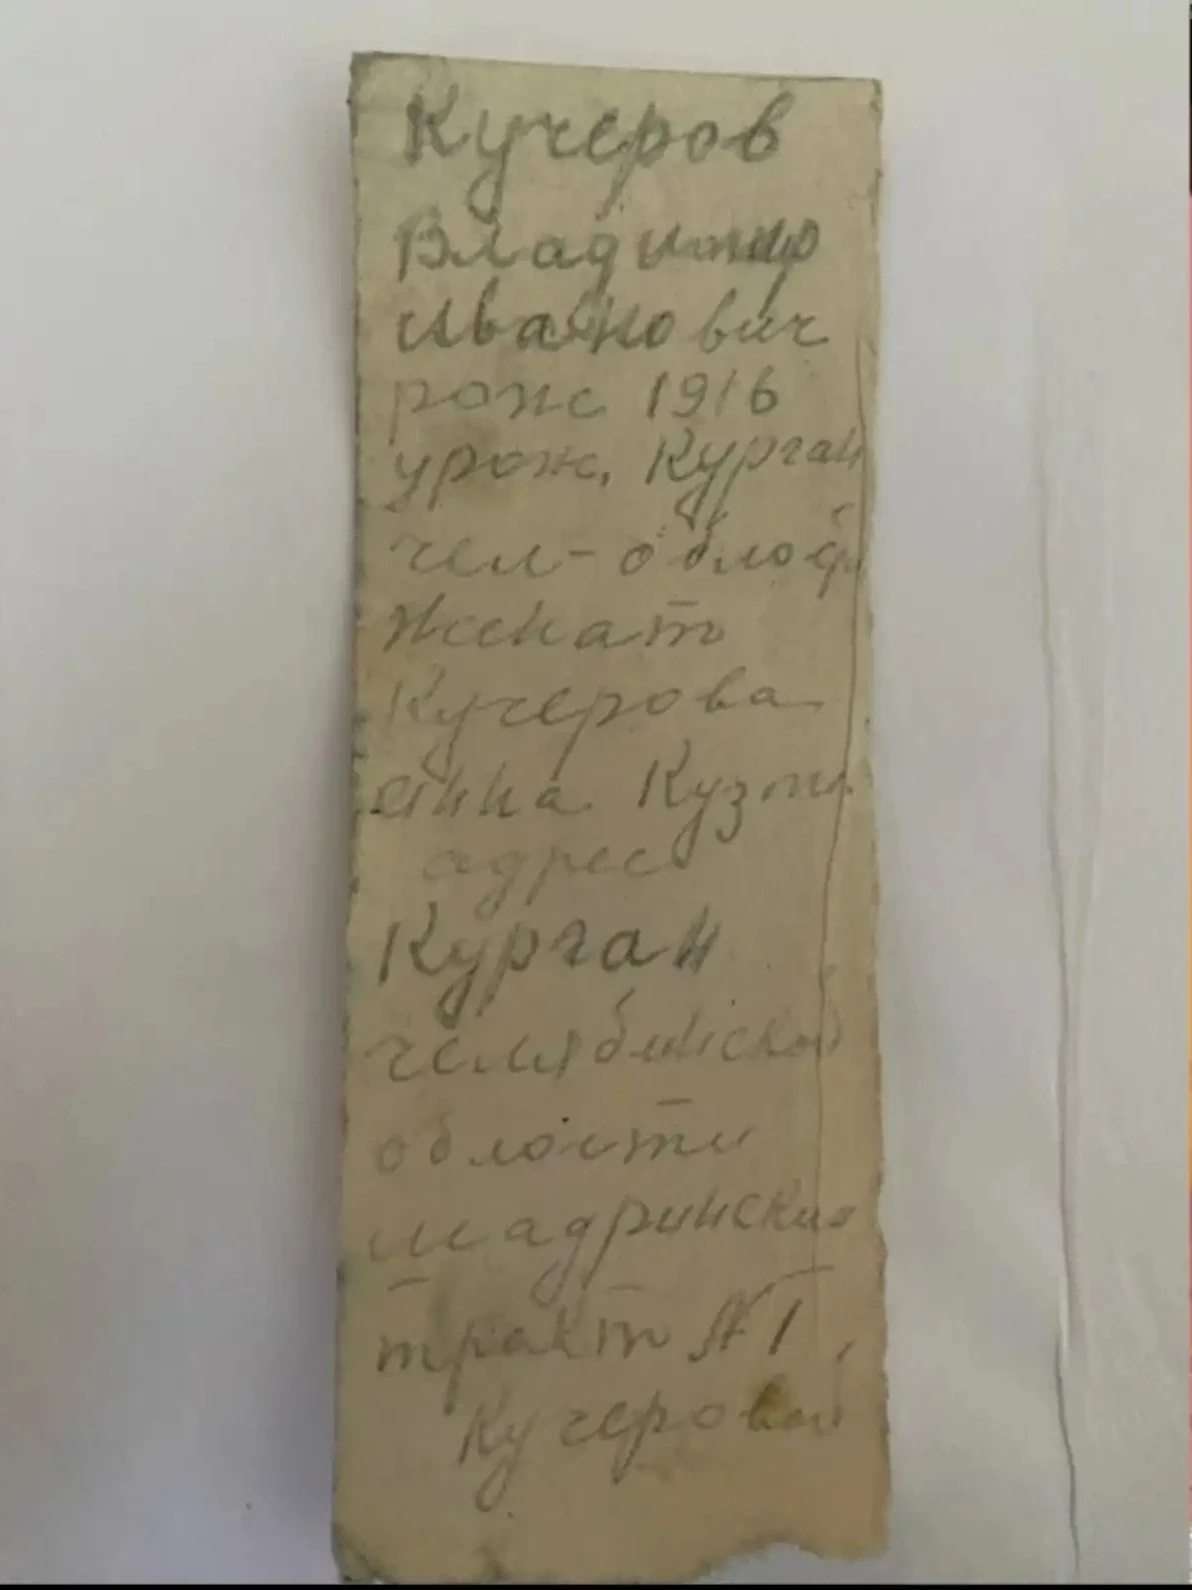 Кучеров
Владимир
Иванович
рож 1916
урож. Курган
чел-облас
Женат
Кучерова
Анна Кузьм
адрес
Курган
челябинской
области
шадринский
тракт №1
Кучеровой